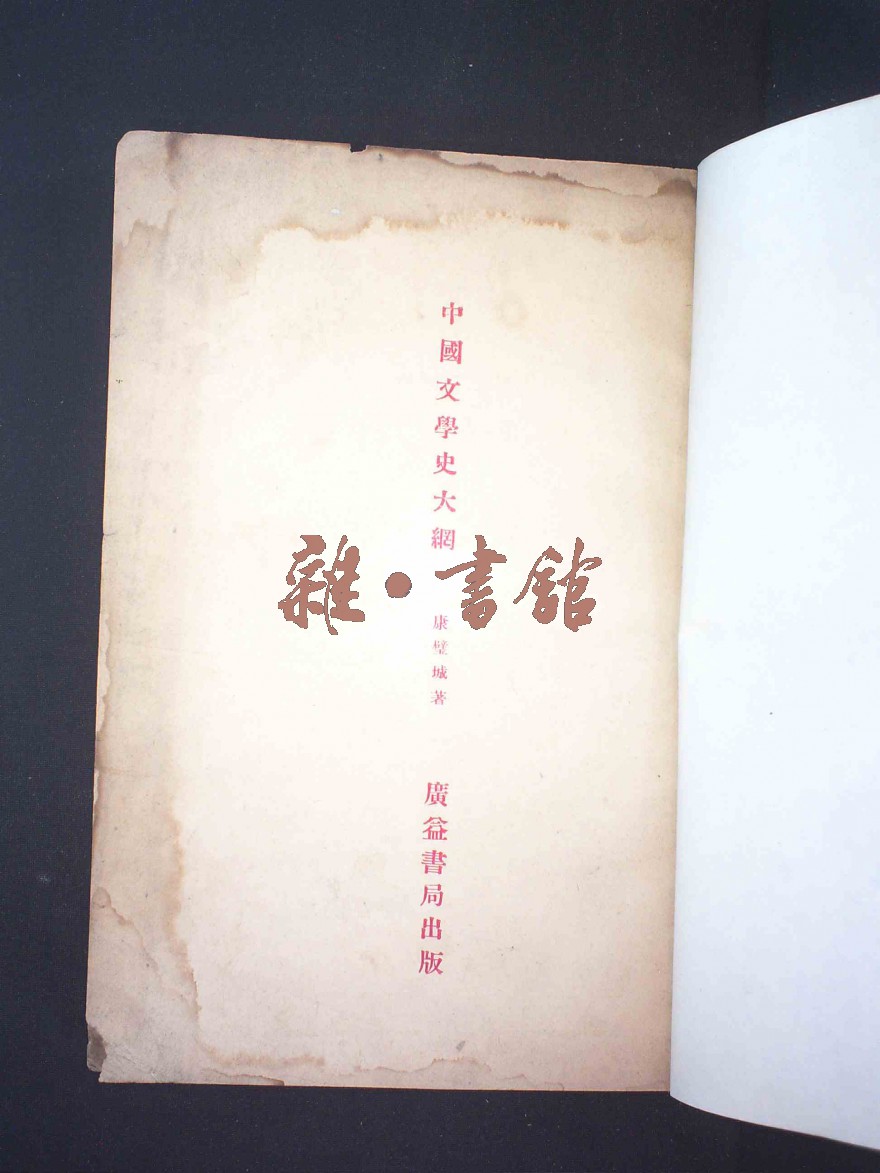 中國文學史大綱
康璧城著
廣益書局出版
雜·書館